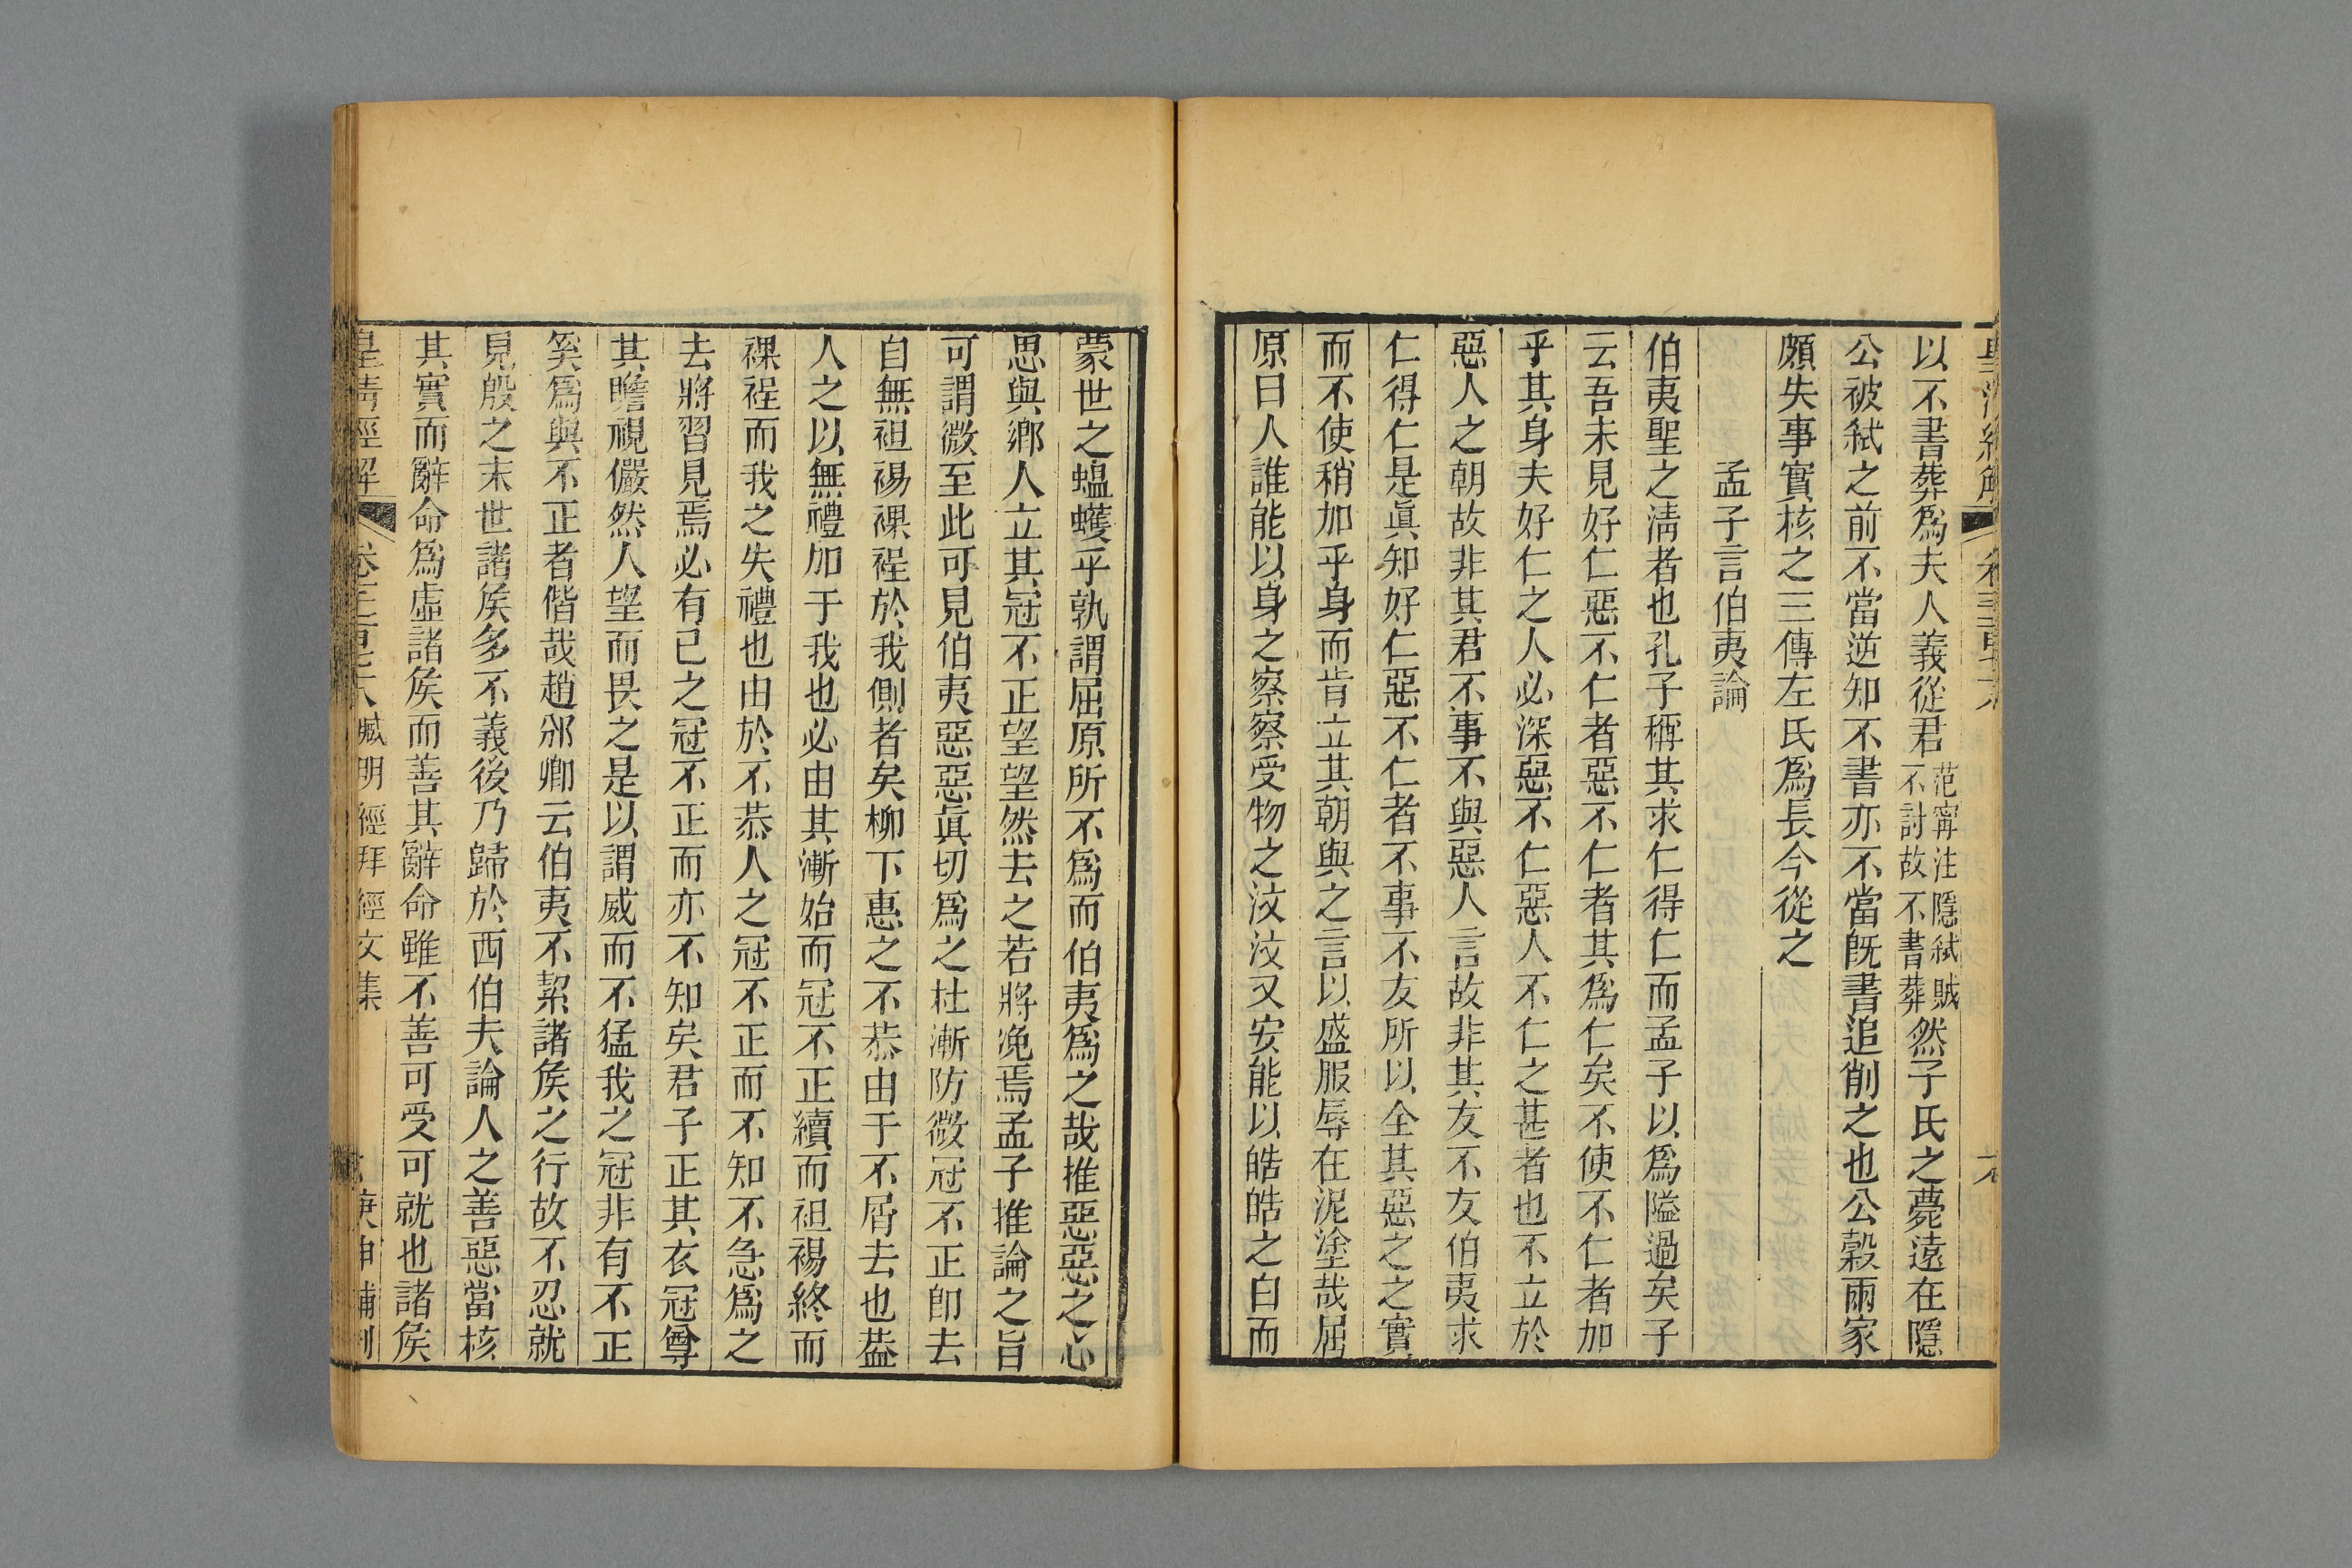 以不書葬爲夫人義從君范甯注隱弒賊不討故不書葬然子氏之薨遠在隱
公被弒之前不當逆知不書亦不當旣書追削之也公榖兩家
頗失事實核之三傳左氏爲長今從之
孟子言伯夷論
伯夷聖之淸者也孔子稱其求仁得仁而孟子以爲隘過矣子
云吾未見好仁惡不仁者惡不仁者其爲仁矣不使不仁者加
乎其身夫好仁之人必深惡不仁惡人不仁之甚者也不立於
惡人之朝故非其君不事不與惡人言故非其友不友伯夷求
仁得仁是眞知好仁惡不仁者不事不友所以全其惡之之實
而不使稍加乎身而肯立其朝與之言以盛服辱在泥塗哉屈
原曰人誰能以身之察察受物之汶汶又安能以皓皓之白而
蒙世之蝹蠖乎孰謂屈原所不爲而伯夷爲之哉推惡惡之心
思與鄉人立其冠不正望望然去之若將浼焉孟子推論之旨
可謂微至此可見伯夷惡惡眞切爲之杜漸防微冠不正卽去
自無袒裼裸裎於我側者矣柳下惠之不恭由于不屑去也葢
人之以無禮加于我也必由其漸始而冠不正續而袒裼終而
裸裎而我之失禮也由於不恭人之冠不正而不知不急爲之
去將習見焉必有已之冠不正而亦不知矣君子正其衣冠尊
其瞻視儼然人望而畏之是以謂威而不猛我之冠非有不正
奚爲與不正者偕哉趙邠卿云伯夷不絜諸侯之行故不忍就
見殷之末世諸侯多不義後乃歸於西伯夫論人之善惡當核
其實而辭命爲虛諸侯而善其辭命雖不善可受可就也諸侯
皇淸經解 臧明經拜經文集 庚申補刊